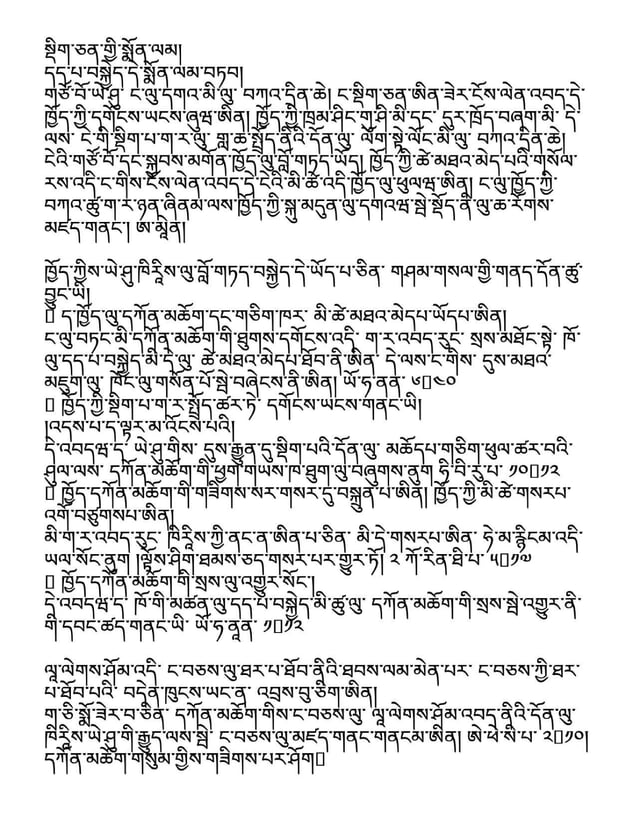 སྡིག་ཅན་གྱི་སྨོན་ལམ།
དད་པ་བསྐྱེད་དེ་སྨོན་ལམ་བཏབ།
གཙོ་བོ་ཡེ་ཤུ་ ང་ལུ་དགའ་མི་ལུ་ བཀའ་དྲིན་ཆེ། ང་སྡིག་ཅན་ཨིན་ཟེར་ངོས་ལེན་འབད་དེ་
ཁྱོད་ཀྱི་དགོངས་ཡངས་ཞུཝ་ཨིན། ཁྱོད་ཀྱི་ཁྲམ་ཤིང་གུ་ཤི་མི་དང་ དུར་ཁྲོད་བཞག་མི་ དེ་
ལས་ ངེ་གི་སྡིག་པ་ག་ར་ལུ་ གླ་ཆ་སྤྲོད་ནིའི་དོན་ལུ་ ལོག་སྟེ་ལོང་མི་ལུ་ བཀའ་དྲིན་ཆེ།
ངེའི་གཙོ་བོ་དང་སྐྱབས་མགོན་ཁྱོད་ལུ་བློ་གཏད་ཡོད། ཁྱོད་ཀྱི་ཚེ་མཐའ་མེད་པའི་གསོལ་
རས་འདི་ང་གིས་ངོས་ལེན་འབད་དེ་ངེའི་མི་ཚེ་འདི་ཁྱོད་ལུ་ཕུལཝ་ཨིན། ང་ལུ་ཁྱོད་ཀྱི་
བཀའ་ཚུ་ག་ར་ཉན་ཞིནམ་ལས་ཁྱོད་ཀྱི་སྐུ་མདུན་ལུ་དགའཝ་སྦེ་སྡོད་ནི་ལུ་ཆ་རོགས་
མཛད་གནང་། ཨ་མཱེན།
ཁྱོད་ཀྱིས་ཡེ་ཤུ་ཁིརཱིས་ལུ་བློ་གཏད་བསྐྱེད་དེ་ཡོད་པ་ཅིན་ གཤམ་གསལ་གྱི་གནད་དོན་ཚུ་
བྱུང་ཡི།
ད་ཁྱོད་ལུ་དཀོན་མཆོག་དང་གཅིག་ཁར་ མི་ཚེ་མཐའ་མེདཔ་ཡོདཔ་ཨིན།
ང་ལུ་བཏང་མི་དཀོན་མཆོག་གི་ཐུགས་དགོངས་འདི་ ག་ར་འབད་རུང་ སྲས་མཐོང་སྟེ་ ཁོ་
ལུ་དད་པ་བསྐྱེད་མི་དེ་ལུ་ ཚེ་མཐའ་མེདཔ་ཐོབ་ནི་ཨིན་ དེ་ལས་ང་གིས་ དུས་མཐའ་
མཇུག་ལུ་ ཁོང་ལུ་གསོན་པོ་སྦེ་བཞེངས་ནི་ཨིན། ཡོ་ཧ་ནན་ ༦༤༠
ཁྱོད་ཀྱི་སྡིག་པ་ག་ར་སྤྲོད་ཚར་ཏེ་ དགོངས་ཡངས་གནང་ཡི།
།འདས་པ་ད་ལྟར་མ་འོངས་པའི།
དེ་འབདཝ་ད་ ཡེ་ཤུ་གིས་ དུས་རྒྱུན་དུ་སྡིག་པའི་དོན་ལུ་ མཆོདཔ་གཅིག་ཕུལ་ཚར་བའི་
ཤུལ་ལས་ དཀོན་མཆོག་གི་ཕྱག་གཡས་ཁ་ཐུག་ལུ་བཞུགས་ནུག ཧི་བི་རུ་པ་ ༡༠༡༢
ཁྱོད་དཀོན་མཆོག་གི་གཟིགས་སར་གསར་དུ་བསྐྲུན་པ་ཨིན། ཁྱོད་ཀྱི་མི་ཚེ་གསརཔ་
འགོ་བཙུགསཔ་ཨིན།
མི་ག་ར་འབད་རུང་ ཁིརཱིས་ཀྱི་ནང་ན་ཨིན་པ་ཅིན་ མི་དེ་གསརཔ་ཨིན་ ཧེ་མ་རྙིངམ་འདི་
ཡལ་སོང་ནུག །ལྟོས་ཤིག་ཐམས་ཅད་གསར་པར་གྱུར་ཏོ། ༢ ཀོ་རིན་ཐི་པ་ ༥༡༧
ཁྱོད་དཀོན་མཆོག་གི་སྲས་ལུ་འགྱུར་སོང་།
དེ་འབདཝ་ད་ ཁོ་གི་མཚན་ལུ་དད་པ་བསྐྱེད་མི་ཚུ་ལུ་ དཀོན་མཆོག་གི་སྲས་སྦེ་འགྱུར་ནི་
གི་དབང་ཚད་གནང་ཡི་ ཡོ་ཧ་ནཱན་ ༡༡༢
ལཱ་ལེགས་ཤོམ་འདི་ ང་བཅས་ལུ་ཐར་པ་ཐོབ་ནིའི་ཐབས་ལམ་མེན་པར་ ང་བཅས་ཀྱི་ཐར་
པ་ཐོབ་པའི་ བདེན་ཁུངས་ཡང་ན་ འབྲས་བུ་ཅིག་ཨིན།
ག་ཅི་སྨོ་ཟེར་བ་ཅིན་ དཀོན་མཆོག་གིས་ང་བཅས་ལུ་ ལཱ་ལེགས་ཤོམ་འབད་ནིའི་དོན་ལུ་
ཁིརཱིས་ཡེ་ཤུ་གི་རྒྱུད་ལས་སྦེ་ ང་བཅས་ལུ་མཛད་གནང་གནངམ་ཨིན། ཨེ་ཕེ་སི་པ་ ༢༡༠།
དཀོན་མཆོག་གསུམ་གྱིས་གཟིགས་པར་ཤོག